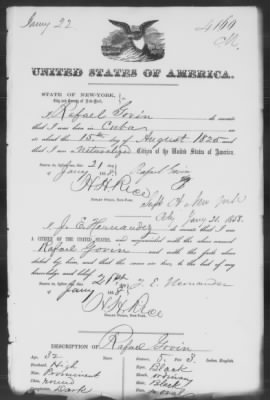 Jany 22
UNITED STATES OF AMERICA.
STATE OF NEW-YORK,
City and County of New-York,
I Rafael Govin do swear
that I was born in Cuba on
or about the 15th day of August 1825
that I am a Naturalized Citizen of the United States of America.
Sworn to before me, 21
Jany 185 Rafael Govin
H H Rice
NOTARY PUBLIC, NEW-YORK.
New York
Jany 21. 1858.
I J. E. Hernandez do swear that I am
A CITIZEN OF THE UNITED STATES, and acquainted with the above named
Rafael Govin and with the facts above
stated by him, and that the same are true, to the best of my
knowledge and belief.
Sworn to before me 21st J. E. Hernandez
Jany 185
H H Rice
NOTARY PUBLIC, NEW-YORK.
DESCRIPTION OF Rafael Govin
Age, 32 Stature, 5 3 Inches, English.
Forehead, High Eyes, Black
Nose, Prominent Mouth, ordinary
Chin, round Hair, Black
Dark Face, oval